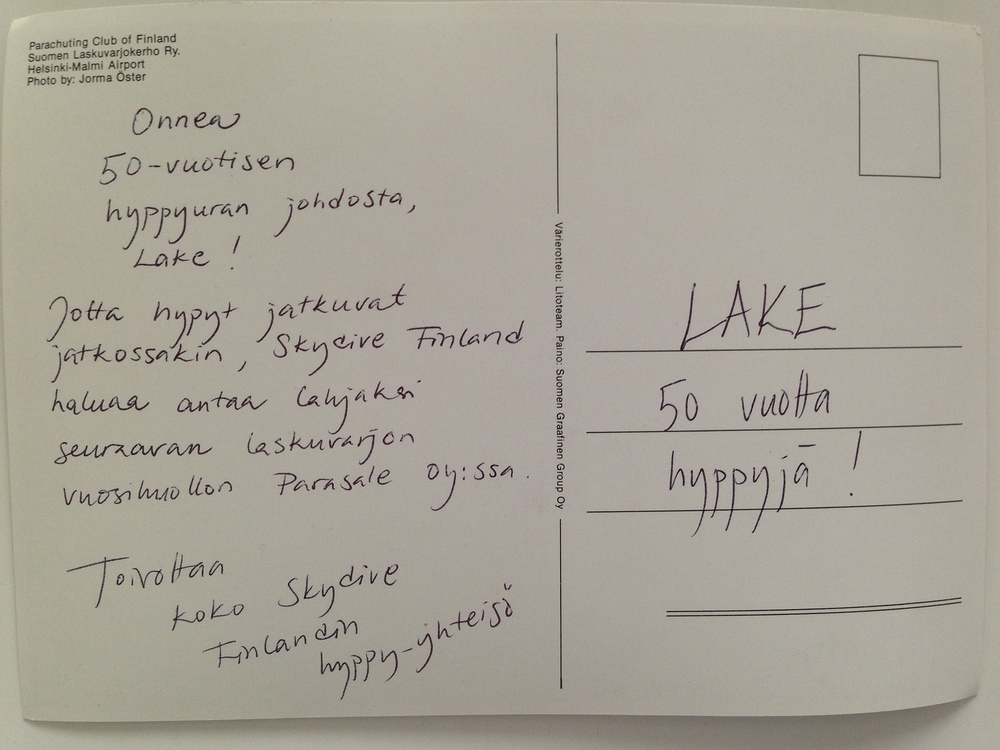 Parachuting Club of Finland
Suomen Laskuvarjokerho Ry.
Helsinki-Malmi Airport
Photo by: Jorma Öster
Onnea
50-vuotisen
hyppyuran johdosta,
Lake!
Jotta hypyt jatkuvat
jatkossakin, Skydive Finland
haluaa antaa lahjaksi
seuraavan laskuvarjon
vuosihuollon Parasale Oy:ssa.
Toivottaa
koko Skydive
Finlandin
hyppy-yhteisö
Värierottelu: Litoteam. Paino: Suomen Graafinen Group Oy
LAKE
50 vuotta
hyppyjä!